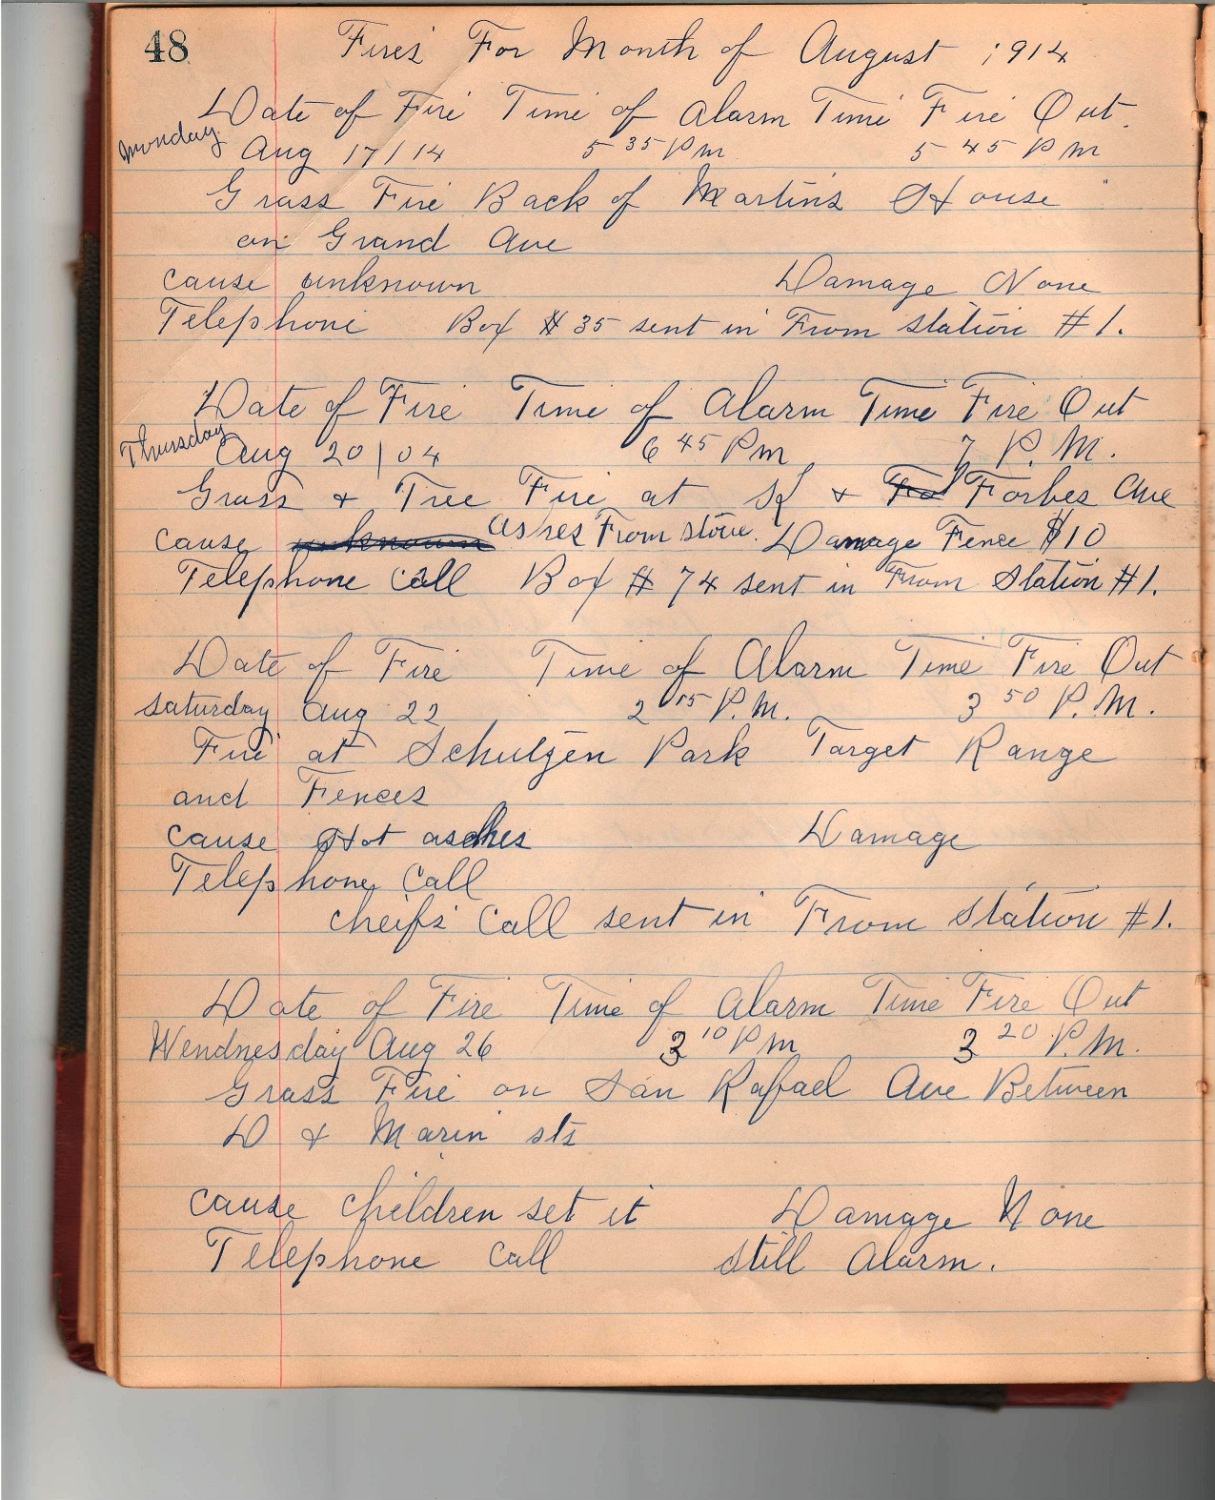 48 Fires For Month of August 1914
Date of Fire Time of Alarm Time Fire Out.
Monday Aug 17/14 5 35 Pm 5 45 P m
Grass Fire Back of Martins House
on Grand Ave
cause unknown Damage None
Telephone Box # 35 sent in From station #1.
Date of Fire Time of Alarm Time Fire Out
Thursday Aug 20/04 6 45 Pm 7 P.M.
Grass & Tree Fire at K & For Forbes Ave
cause unknown ashes From stove. Damage Fence $10
Telephone call Box # 74 sent in From Station #1.
Date of Fire Time of Alarm Time Fire Out
Saturday Aug 22 2 15 P.M. 3 50 P.M.
Fire at Schutzen Park Target Range
and Fences
cause Hot asches Damage
Telephone Call
cheifs call sent in From Station #1.
Date of Fire Time of Alarm Time Fire Out
Wendnesday Aug 26 3 10 P m 3 20 P.M.
Grass Fire on San Rafael Ave Between
D & Marin sts
cause children set it Damage None
Telephone Call still Alarm.